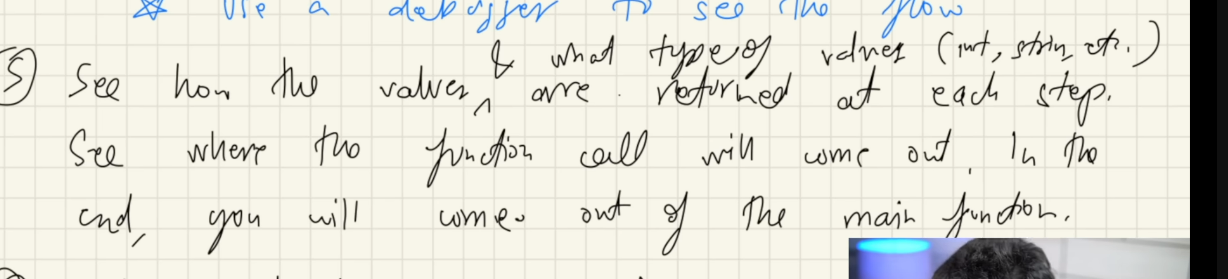 * Use a debugger to see the flow
& what type of values (int, string etc.)
5) See how the values ^ are returned at each step.
See where the function call will come out. In the
end, you will come out of the main function.